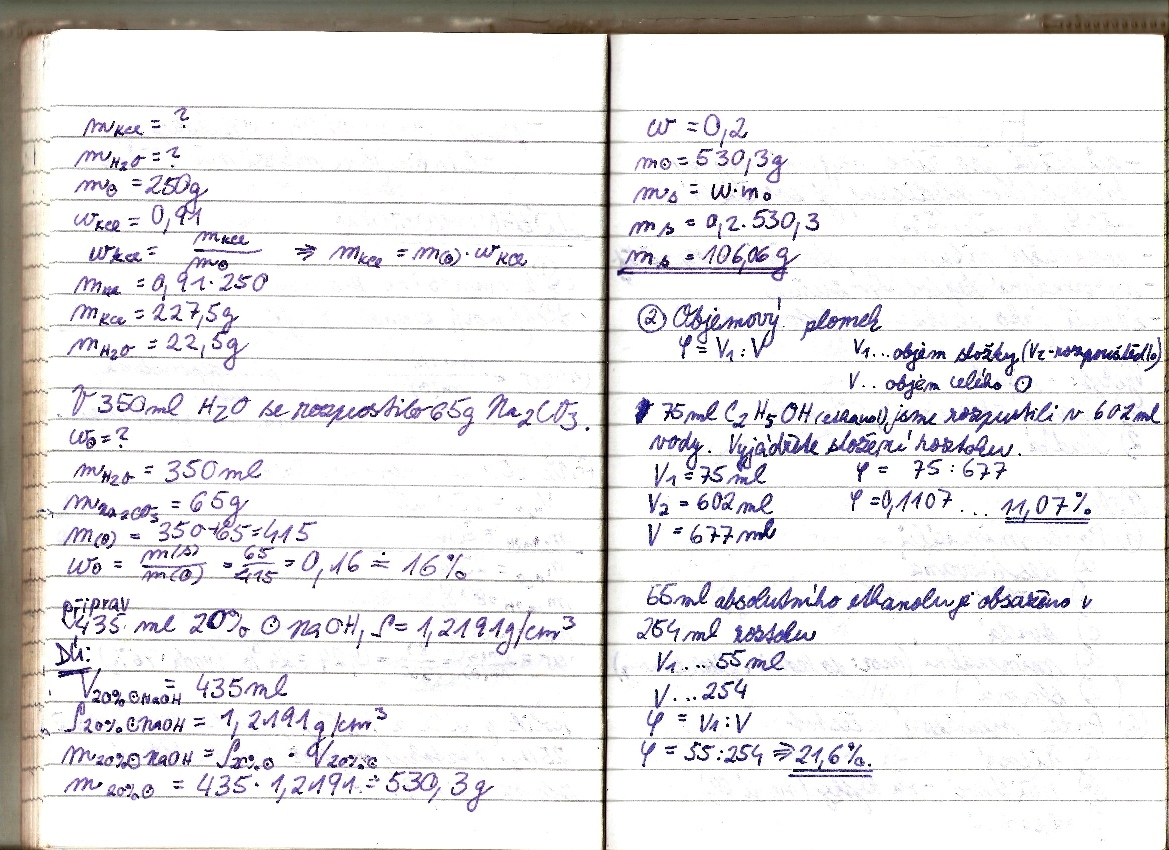 m KCl = ?
m H2O = ?
m⊙ = 250g
w KCl = 0,91
w KCl = m KCl / m⊙ ⇒ m KCl = m(⊙) · w KCl
m KCl = 0,91 · 250
m KCl = 227,5g
m H2O = 22,5g
V 350ml H2O se rozpostilo 65g Na2CO3.
w⊙ = ?
m H2O = 350ml
m Na2CO3 = 65g
m(⊙) = 350+65=415
w⊙ = m(s) / m(⊙) = 65/415 = 0,16 ≐ 16%
připrav
435 ml 20% ⊙ NaOH, ρ = 1,2191g/cm³
DÚ:
V 20%⊙NaOH = 435ml
ρ 20%⊙NaOH = 1,2191g/cm³
m 20%⊙NaOH = ρ 20%⊙ · V 20%⊙
m 20%⊙ = 435 · 1,2191 ≐ 530,3g
w = 0,2
m⊙ = 530,3g
m s = w · m⊙
m s = 0,2 · 530,3
m s = 106,06g
② Objemový zlomek
φ = V1 : V V1...objem složky (V2-rozpouštědlo)
V.. objem celého ⊙
75ml C2H5OH (ethanol) jsme rozpustili v 602ml
vody. Vyjádřete složení roztoku.
V1 = 75ml φ = 75 : 677
V2 = 602ml φ = 0,1107 ... 11,07%
V = 677ml
55ml absolutního ethanolu je obsaženo v
254ml roztoku
V1 ... 55ml
V ... 254
φ = V1 : V
φ = 55 : 254 ⇒ 21,6%.